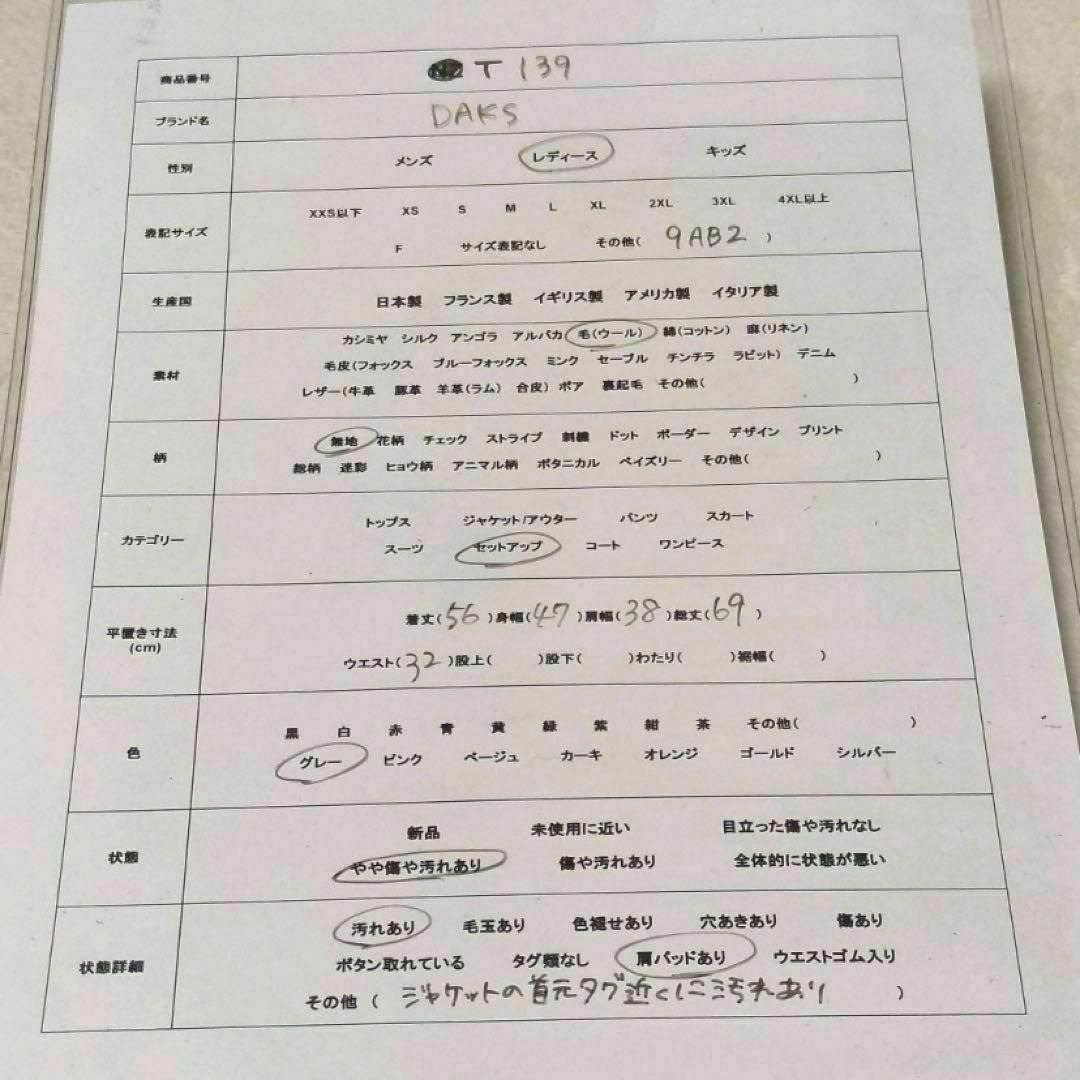 商品番号 T 139
ブランド名 DAKS
性別 メンズ レディース キッズ
表記サイズ XXS以下 XS S M L XL 2XL 3XL 4XL以上
F サイズ表記なし その他( 9AB2 )
生産国 日本製 フランス製 イギリス製 アメリカ製 イタリア製
素材 カシミヤ シルク アンゴラ アルパカ 毛(ウール) 綿(コットン) 麻(リネン)
毛皮(フォックス ブルーフォックス ミンク セーブル チンチラ ラビット) デニム
レザー(牛革 豚革 羊革(ラム) 合皮) ボア 裏起毛 その他( )
柄 無地 花柄 チェック ストライプ 刺繍 ドット ボーダー デザイン プリント
総柄 迷彩 ヒョウ柄 アニマル柄 ボタニカル ペイズリー その他( )
カテゴリー トップス ジャケット/アウター パンツ スカート
スーツ セットアップ コート ワンピース
平置き寸法 着丈(56)身幅(47)肩幅(38)総丈(69)
(cm) ウエスト(32)股上( )股下( )わたり( )裾幅( )
色 黒 白 赤 青 黄 緑 紫 紺 茶 その他( )
グレー ピンク ベージュ カーキ オレンジ ゴールド シルバー
状態 新品 未使用に近い 目立った傷や汚れなし
やや傷や汚れあり 傷や汚れあり 全体的に状態が悪い
状態詳細 汚れあり 毛玉あり 色褪せあり 穴あきあり 傷あり
ボタン取れている タグ類なし 肩パッドあり ウエストゴム入り
その他 ( ジャケットの首元タグ近くに汚れあり )